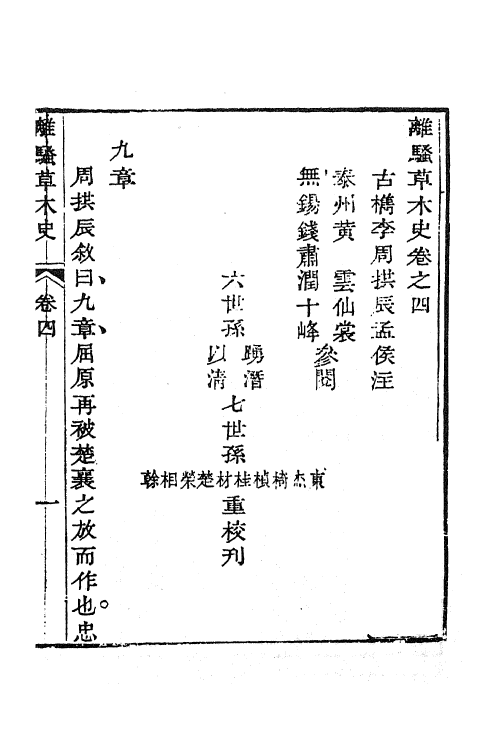 離騷草木史卷之四
古檇李周拱辰孟侯注
泰州黃　雲仙裳
無錫錢肅潤十峰
參閱
六世孫
踴潛
以清
七世孫
東杰椅楨桂材楚榮相榦
重校刊
九章
周拱辰敘曰、九章、屈原再被楚襄之放而作也。忠
離騷草木史　卷四　一